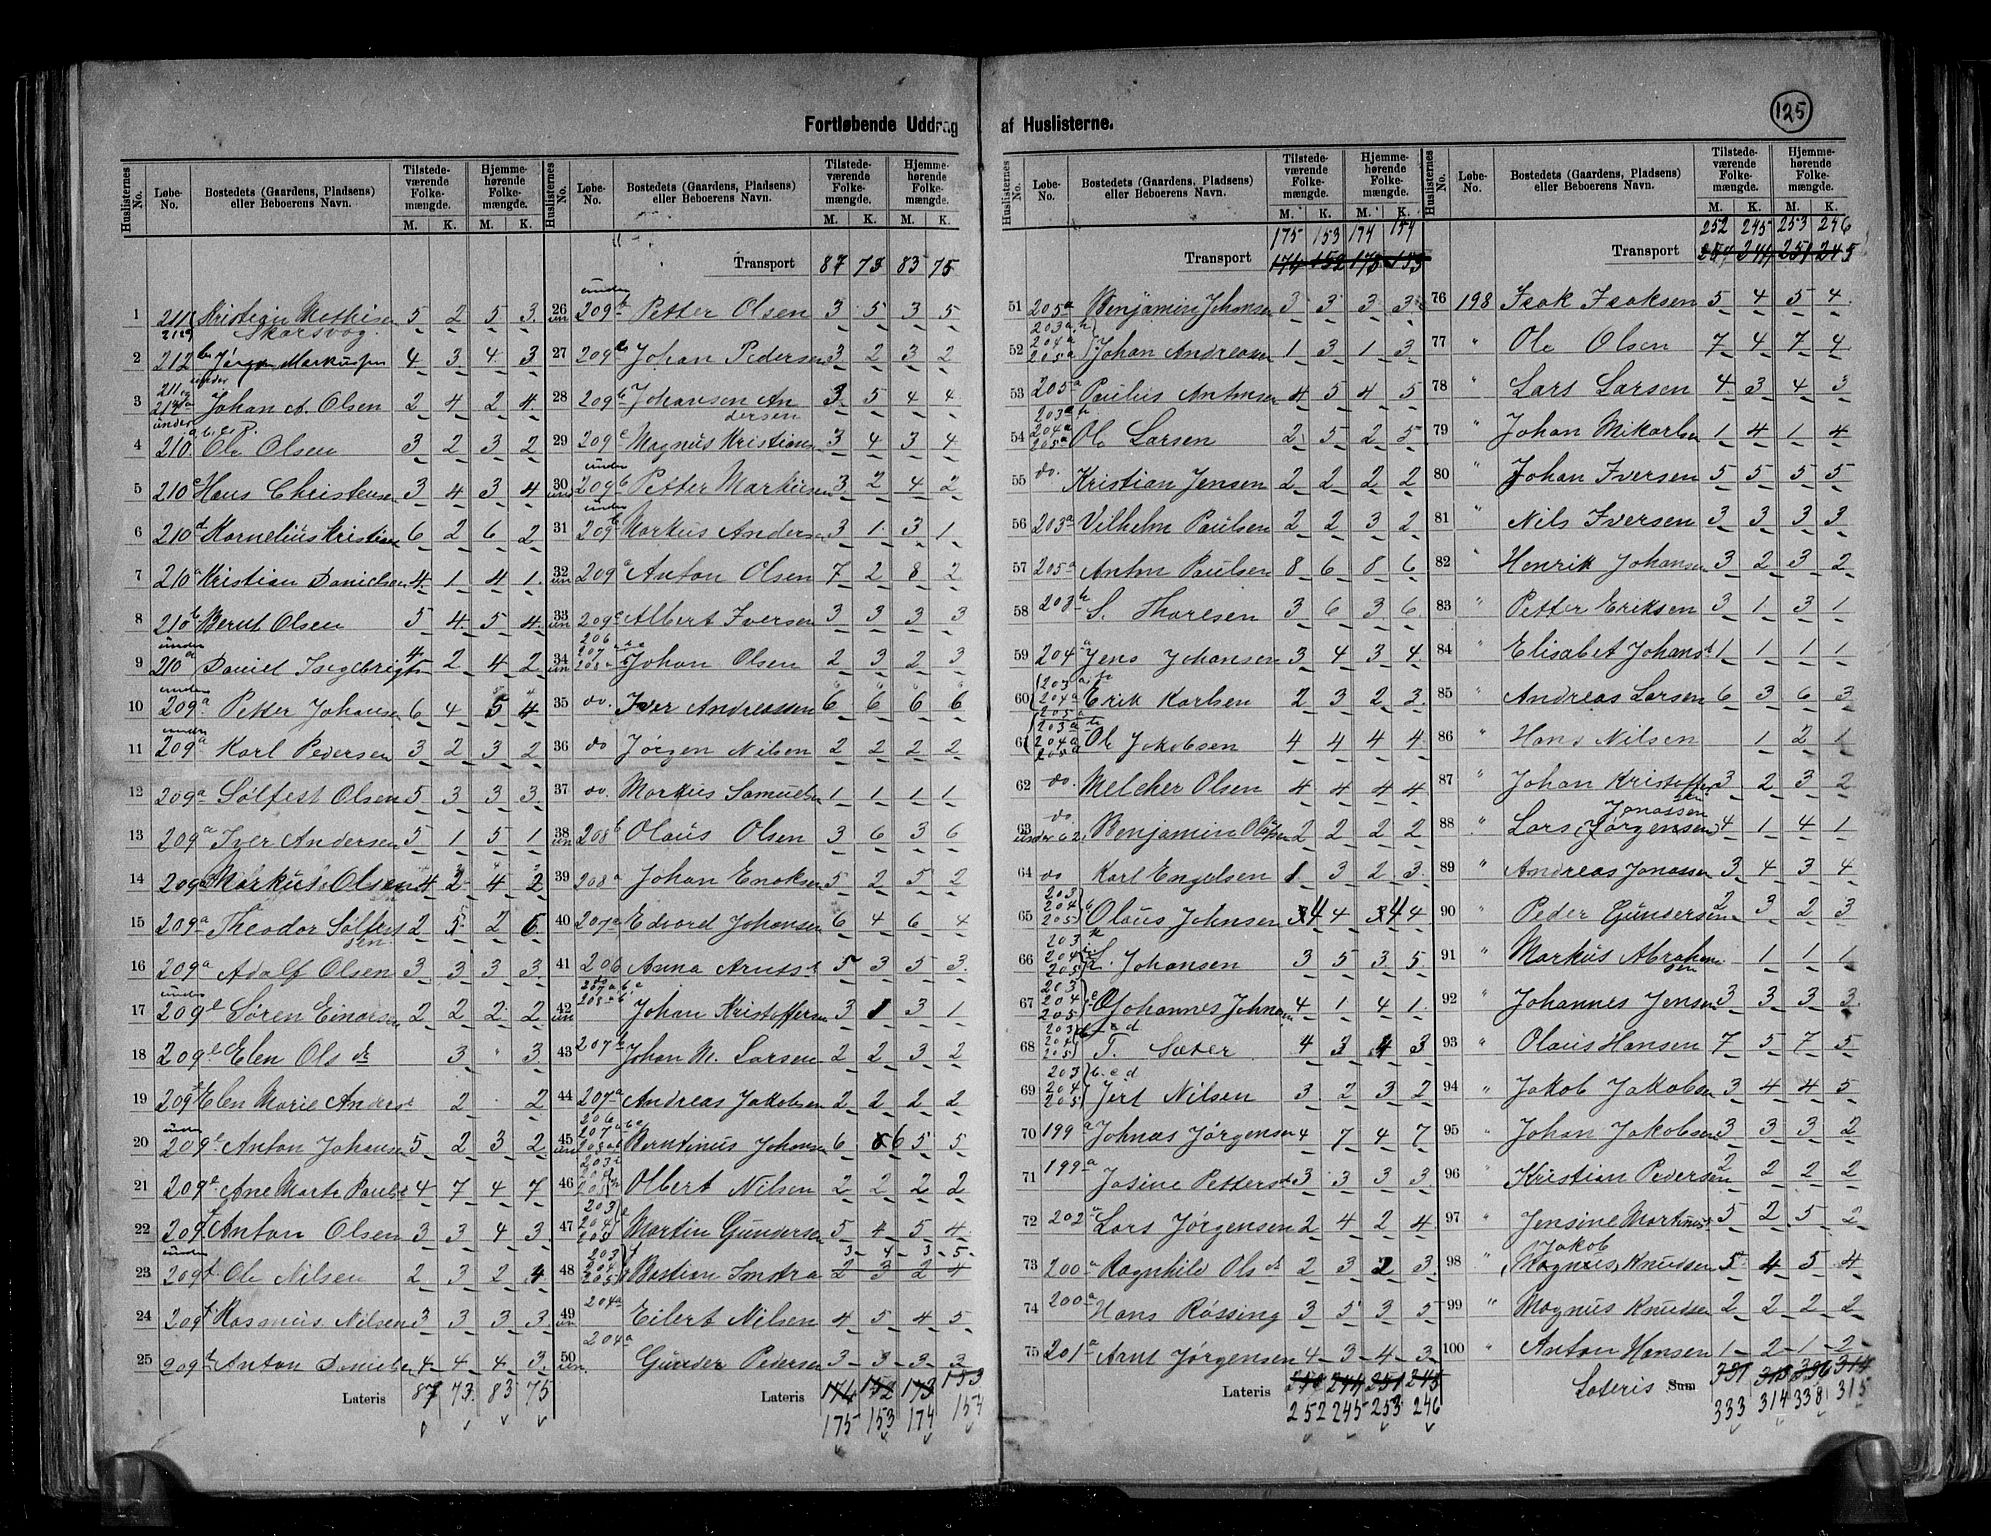 125
Fortløbende Uddrag af Huslisterne.
Huslisternes No. Løbe-No. Bostedets (Gaardens, Pladsens) eller Beboerens Navn. Tilstedeværende Folkemængde. M. K. Hjemmehørende Folkemængde. M. K.
1 211 Kristian Mathisen 5 2 5 3
Skarsvog.
2 212 Jørgen Markussen 4 3 4 3
3 Johan A. Olsen 2 4 2 4
under a. b. c. d.
4 210 Ole Olsen 3 2 3 2
5 210 c Hans Christensen 3 4 3 4
6 210 d Kornelius Kristian 6 2 6 2
7 210 a Kristian Danielsen 4 1 4 1
8 210 b Bernt Olsen 5 4 5 4
under
9 210 a Daniel Ingebrigts 4 2 4 2
under
10 209 a Petter Johansen 6 4 5 4
under
11 209 a Karl Pedersen 3 2 3 2
12 209 a Sølfest Olsen 5 3 3 3
13 209 a Iver Andersen 5 1 5 1
14 209 a Markus Olsen 4 2 4 2
15 209 a Theodor Sølfestsen 2 5 2 6
16 209 a Adolf Olsen 3 3 3 3
under
17 209 Søren Einarsen 2 2 2 2
18 209 Elen Ols dr 3 " 3
19 209 Elen Marie Anders 2 2
under
20 209 Anton Johansen 5 2 3 2
21 209 Ane Marte Pauls 4 7 4 7
22 209 f Anton Olsen 3 3 4 3
under
23 209 f Ole Nilsen 2 3 2 4
24 209 f Rasmus Nilsen 3 3 3 3
25 209 Anton Daniels 4 4 4 3
Lateris 87 73 83 75
Huslisternes No. Løbe-No. Bostedets (Gaardens, Pladsens) eller Beboerens Navn. Tilstedeværende Folkemængde. M. K. Hjemmehørende Folkemængde. M. K.
Transport 87 73 83 75
under
26 209 b Petter Olsen 3 5 3 5
27 209 Johan Pedersen 3 2 3 2
28 209 b Johansen Andersen 3 5 4 4
29 209 c Magnus Kristian 3 4 3 4
under
30 209 b Petter Markusen 3 2 4 2
under
31 209 b Markus Anders 3 1 3 1
32 209 Anton Olsen 7 2 8 2
33 209 c Albert Iversen 3 3 3 3
34 206 207 208 Johan Olsen 2 3 2 3
35 do. Iver Andreassen 6 6 6 6
36 do Jørgen Nilsen 2 2 2 2
37 do. Markus Samuelsen 1 1 1 1
38 208 b Olaus Olsen 3 6 3 6
39 208 a Johan Enoksen 5 2 5 2
40 207 a Edvard Johansen 6 4 6 4
41 206 Anna Arnts 5 3 5 3
42 Johan Kristoffersen 3 1 3 1
43 207 Johan M. Larsen 2 2 3 2
44 207 a Andreas Jakobsen 2 2 2 2
45 Berntinus Johansen 6 6 5 5
46 Olbert Nilsen 2 2 2 2
47 203 204 205 Martin Gundersen 5 4 5 4
3 4 3 5
48 203 204 205 Bastian Smdra 2 3 2 4
49 204 a Eilert Nilsen 4 5 4 5
50 204 a Gunder Pedersen 3 3 3 3
Lateris 174 152 173 153
175 153 174 154
Huslisternes No. Løbe-No. Bostedets (Gaardens, Pladsens) eller Beboerens Navn. Tilstedeværende Folkemængde. M. K. Hjemmehørende Folkemængde. M. K.
175 153 174 154
Transport 174 152 173 153
51 205 a Benjamin Johansen 3 3 3 3
52 203 a, b 204 a 205 a Johan Andreasen 1 3 1 3
53 205 a Paulus Antonsen 4 5 4 5
54 203 a b 204 a 205 a Ole Larsen 2 5 2 5
55 do. Kristian Jensen 2 2 2 2
56 203 a Vilhelm Paulsen 2 2 3 2
57 205 a Anton Paulsen 8 6 8 6
58 203 b S. Thoresen 3 6 3 6
59 204 a Jens Johansen 3 4 3 4
60 203 a b 204 a 205 a Erik Karlsen 2 3 2 3
61 203 a b 204 a 205 a Ole Jakobsen 4 4 4 4
62 do. Melcher Olsen 4 4 4 4
do.
63 under 62. Benjamin Olsen 2 2 2 2
64 do Karl Engelsen 1 3 2 3
65 203 204 205 Olaus Johnsen 4 4 4 4
66 203 204 205 S. Johansen 3 5 3 5
67 203 204 205 Johannes Johnsen 4 1 4 1
68 203 204 205 T. Sæter 4 3 4 3
69 203 204 205 b. c d Jert Nilsen 3 2 3 2
70 199 a Johnas Jørgensen 4 7 4 7
71 199 a Josine Petters 3 3 3 3
72 202 a Lars Jørgensen 2 4 2 4
73 200 a Ragnhild Ols dr 2 3 2 3
74 200 a Hans Røssing 3 5 3 5
75 201 a Arnt Jørgensen 4 3 4 3
Lateris 244 251 245
252 245 253 246
Huslisternes No. Løbe-No. Bostedets (Gaardens, Pladsens) eller Beboerens Navn. Tilstedeværende Folkemængde. M. K. Hjemmehørende Folkemængde. M. K.
252 245 253 246
Transport 244 251 245
76 198 Isak Isaksen 5 4 5 4
77 " Ole Olsen 7 4 7 4
78 " Lars Larsen 4 3 4 3
79 " Johan Mikalsen 1 4 1 4
80 " Johan Iversen 5 5 5 5
81 " Nils Iversen 3 3 3 3
82 " Henrik Johansen 3 2 3 2
83 " Petter Eriksen 3 1 3 1
84 " Elisabet Johans 1 1 1 1
85 " Andreas Larsen 6 3 6 3
86 " Hans Nilsen 1 2 1
87 " Johan Kristoffersen 3 2 3 2
Jonassen
88 " Lars (Jørgensen) 4 1 4 1
89 " Andreas Jonassen 3 4 3 4
90 " Peder Gundersen 2 3 2 3
91 " Markus Abrahamsen 1 1 1
92 " Johannes Jensen 3 3 3 3
93 " Olaus Hansen 7 5 7 5
94 " Jakob Jakobsen 3 4 4 5
95 " Johan Jakobsen 3 3 3 2
96 " Kristian Pedersen 2 2 2 2
97 " Jensine Martinus 5 2 5 2
Jakob
98 " (Magnus) Knudsen 5 4 5 4
99 " Magnus Knudsen 2 2 2 2
100 " Anton Hansen 1 2 1 2
Lateris Sum 331 313 336 314
333 314 338 315